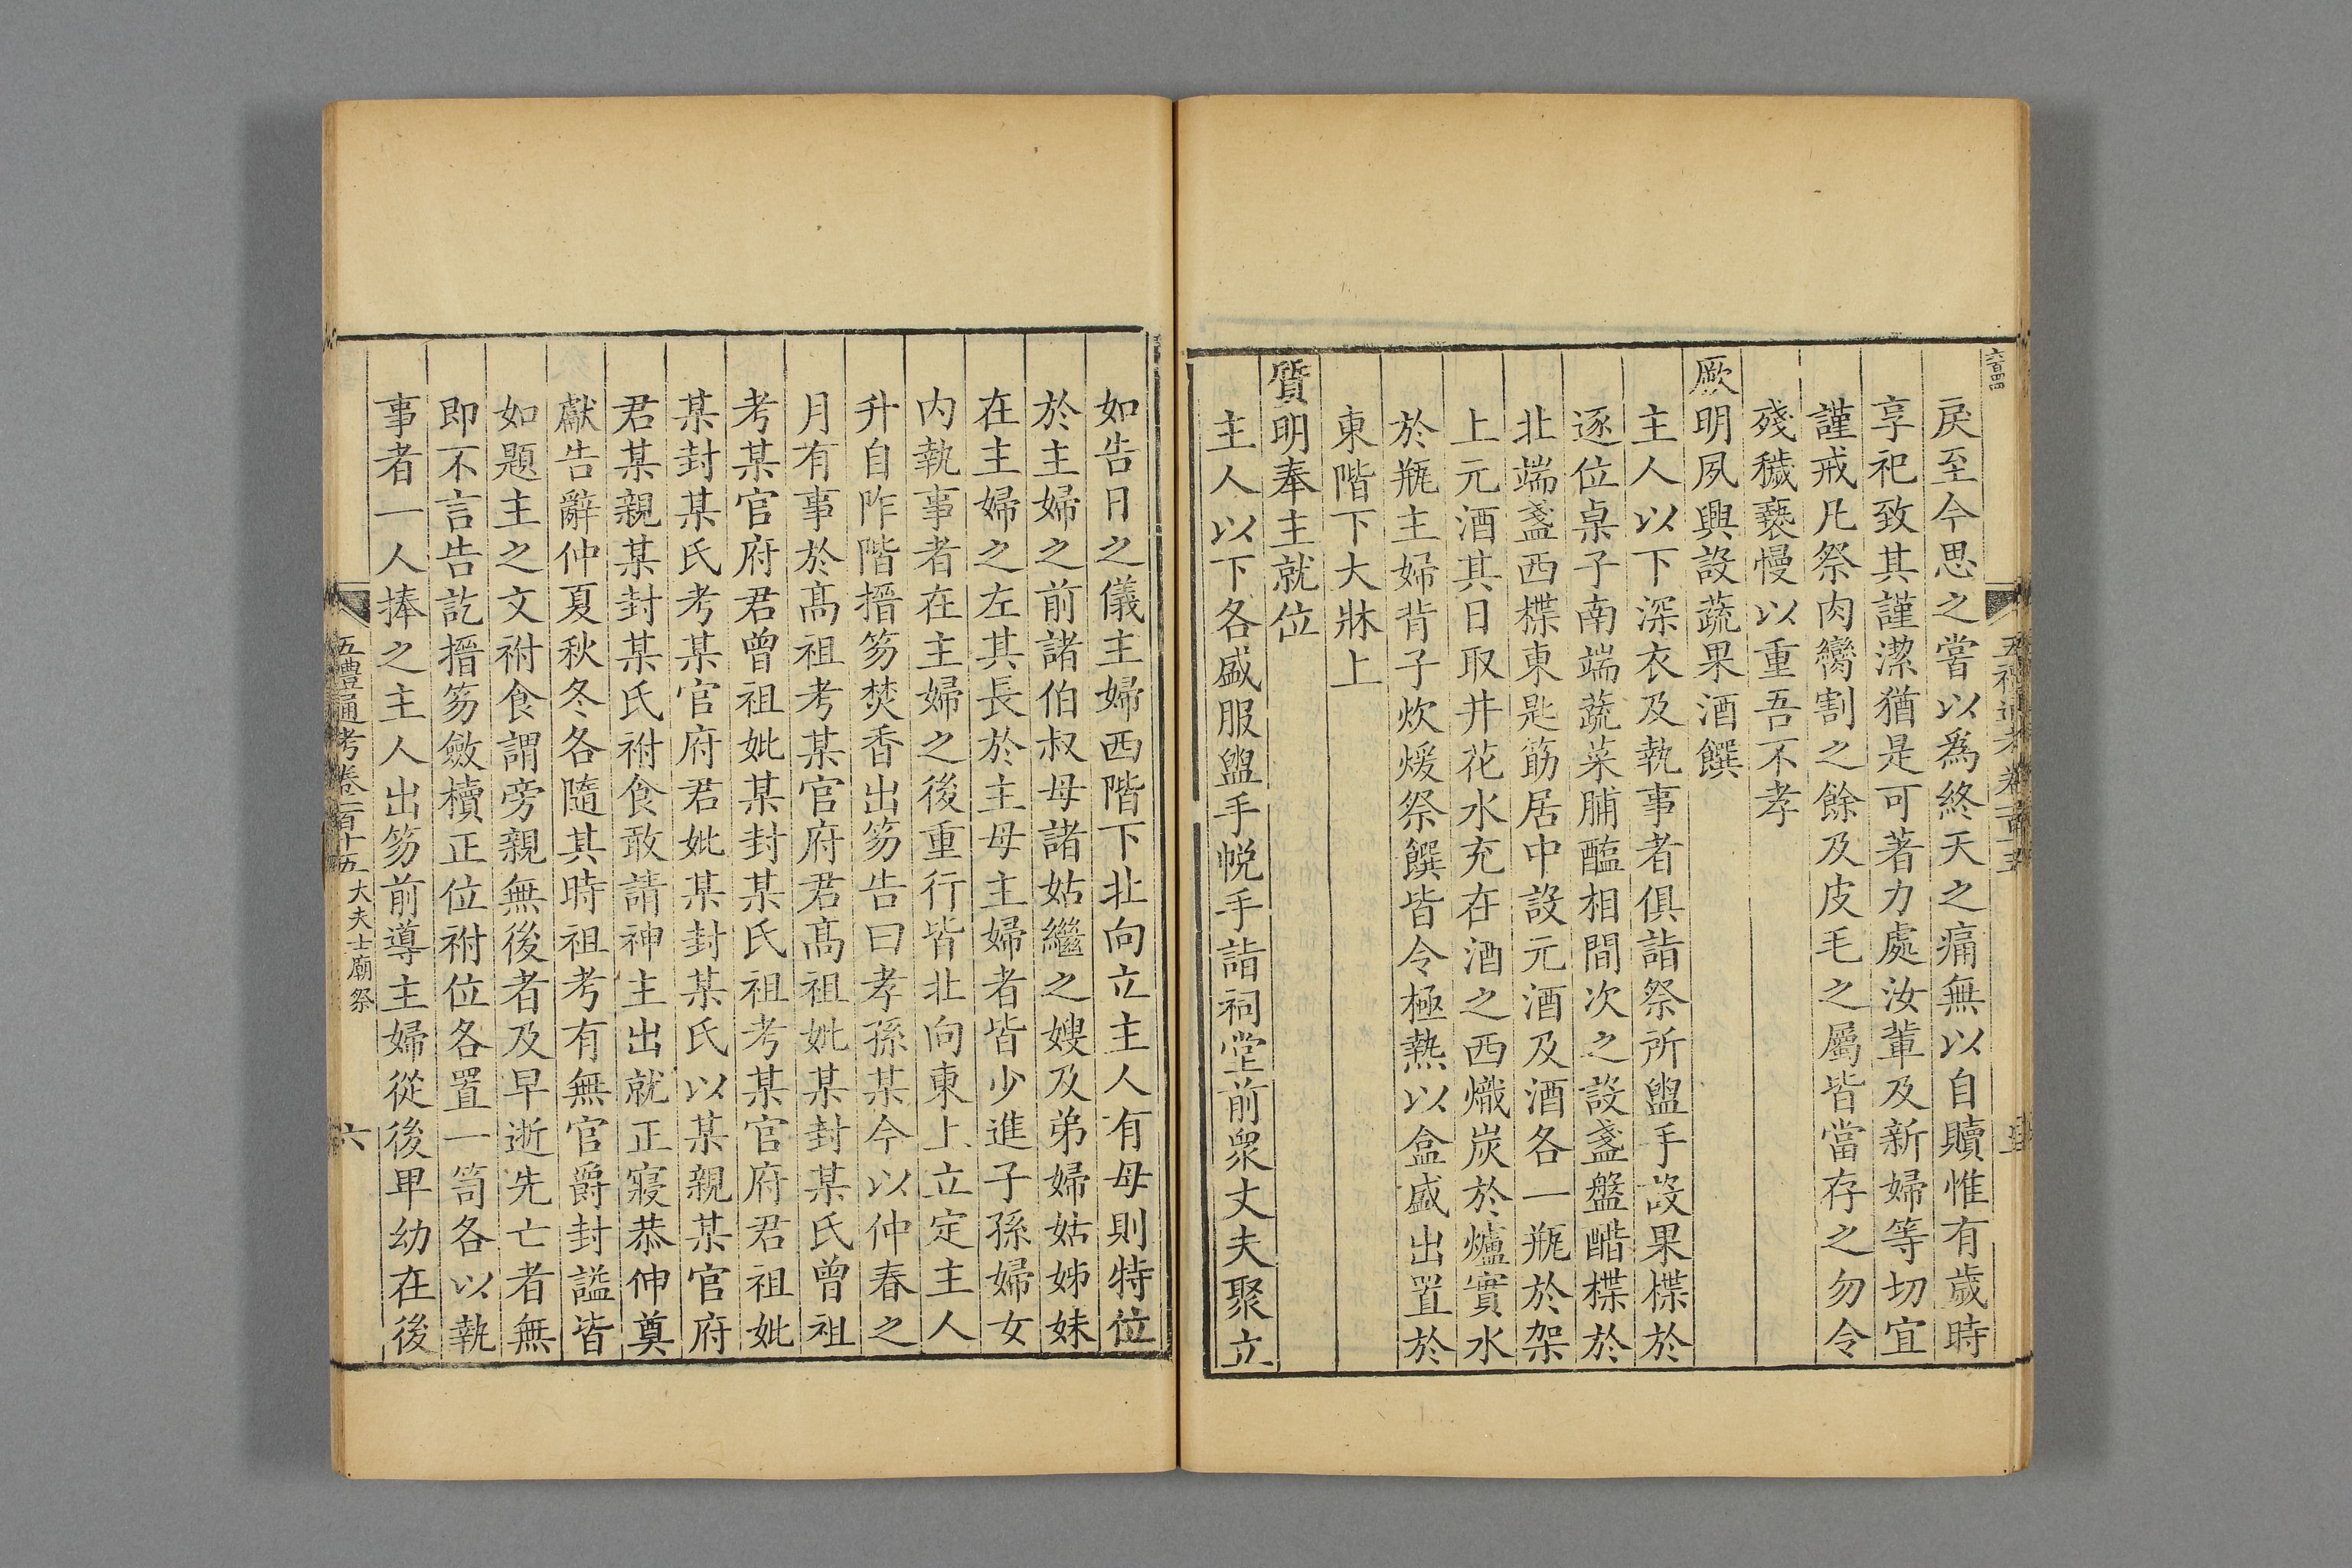 六百四四
五禮通考卷一百十五
戾至今思之嘗以爲終天之痛無以自贖惟有歲時
享祀致其謹潔猶是可著力處汝輩及新婦等切宜
謹戒凡祭肉臠割之餘及皮毛之屬皆當存之勿令
殘穢褻慢以重吾不孝
厥明夙興設蔬果酒饌
主人以下深衣及執事者俱詣祭所盥手設果楪於
逐位桌子南端蔬菜脯醢相間次之設盞盤醋楪於
北端盞西楪東匙筯居中設元酒及酒各一瓶於架
上元酒其日取井花水充在酒之西熾炭於爐實水
於瓶主婦背子炊煖祭饌皆令極熱以盒盛出置於
東階下大牀上
質明奉主就位
主人以下各盛服盥手帨手詣祠堂前衆丈夫聚立
如告日之儀主婦西階下北向立主人有母則特位
於主婦之前諸伯叔母諸姑繼之嫂及弟婦姑姊妹
在主婦之左其長於主母主婦者皆少進子孫婦女
内執事者在主婦之後重行皆北向東上立定主人
升自阼階搢笏焚香出笏告曰孝孫某今以仲春之
月有事於髙祖考某官府君髙祖妣某封某氏曾祖
考某官府君曾祖妣某封某氏祖考某官府君祖妣
某封某氏考某官府君妣某封某氏以某親某官府
君某親某封某氏祔食敢請神主出就正寢恭伸奠
獻告辭仲夏秋冬各隨其時祖考有無官爵封諡皆
如題主之文祔食謂旁親無後者及早逝先亡者無
即不言告訖搢笏斂櫝正位祔位各置一笥各以執
事者一人捧之主人出笏前導主婦從後卑幼在後
五禮通考卷一百十五 大夫士廟祭 六